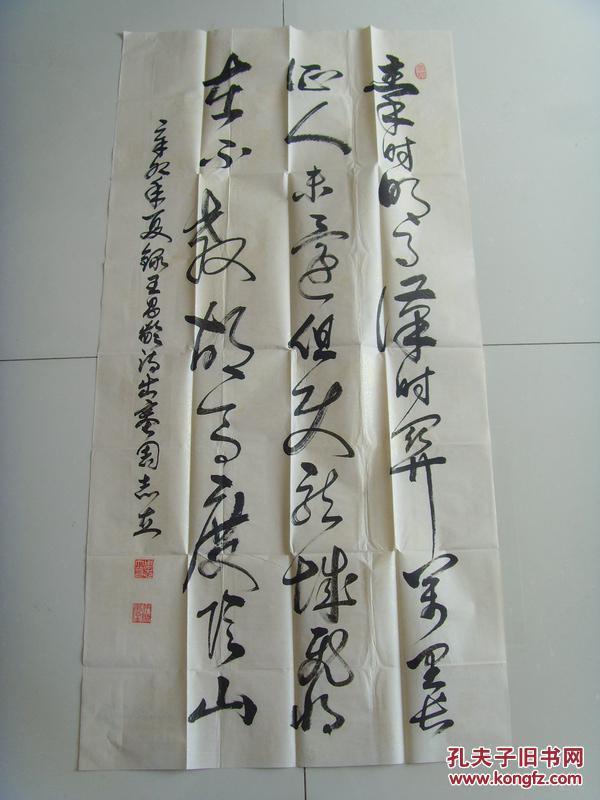 秦时明月漢时関萬里长
征人未還但使龙城飛将
在不教胡馬度阴山
辛卯年夏錄王昌齡诗出塞周志立
孔夫子旧书网
www.kongfz.com